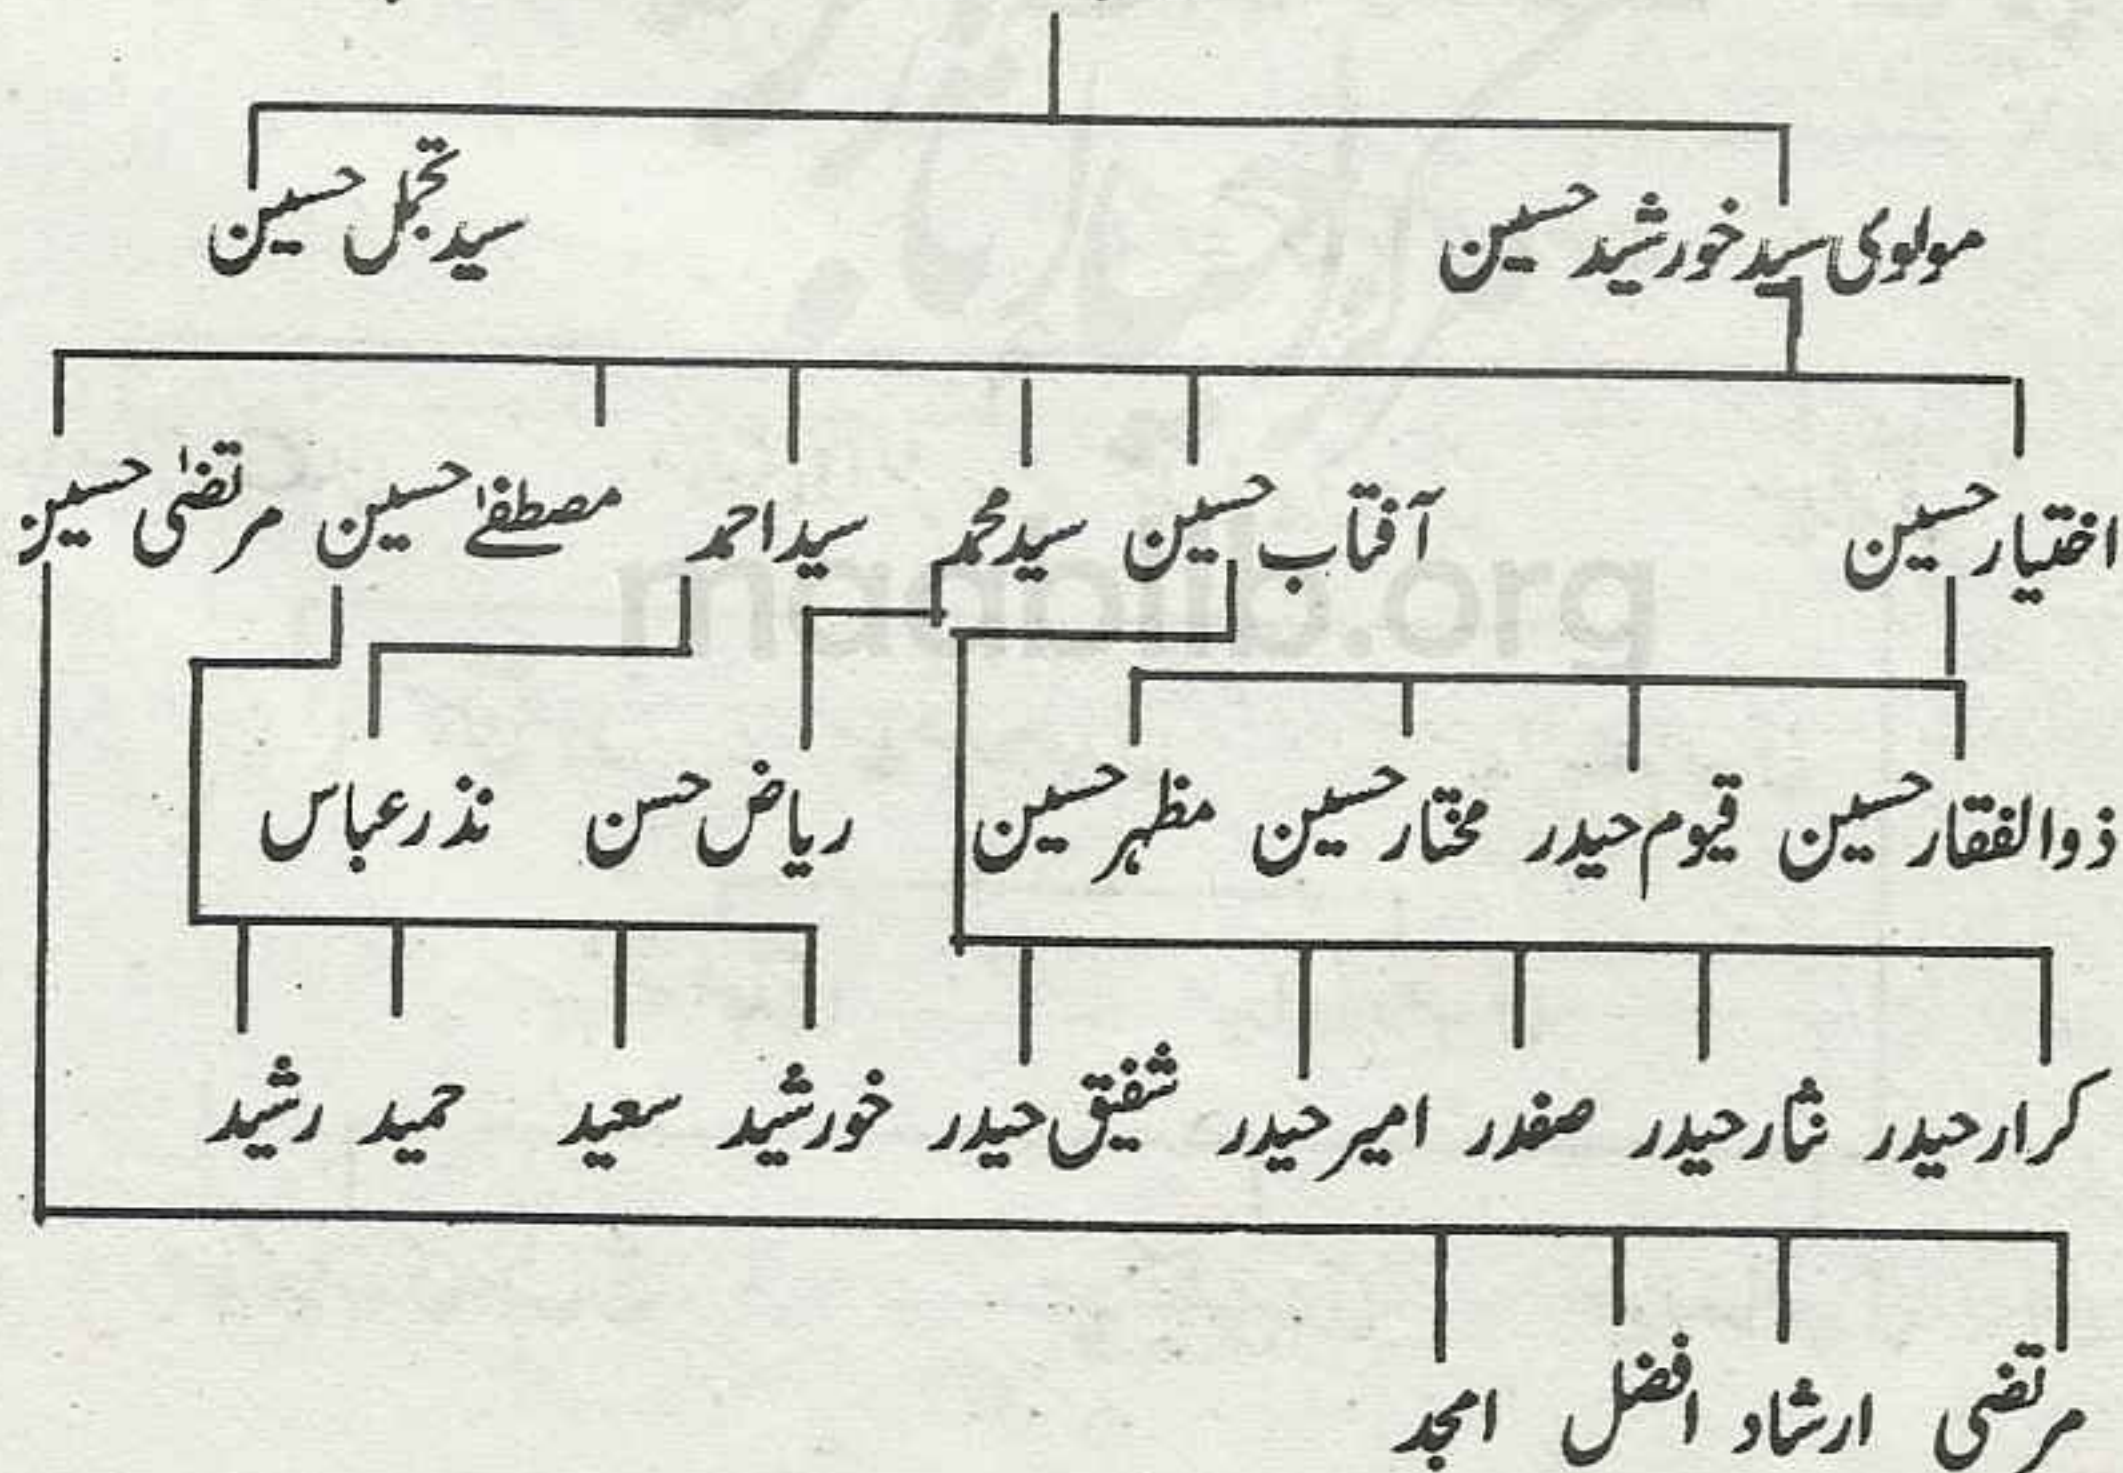 مولوی سید خورشید حسین سید تجمل حسین
اختیار حسین آفتاب حسین سید محمد سید احمد مصطفےٰ حسین مرتضیٰ حسین
maablib.org
ذوالفقار حسین قیوم حیدر مختار حسین مظہر حسین ریاض حسن نذر عباس
کرار حیدر نثار حیدر صفدر امیر حیدر شفیق حیدر خورشید سعید حمید رشید
مرتضی ارشاد افضل امجد